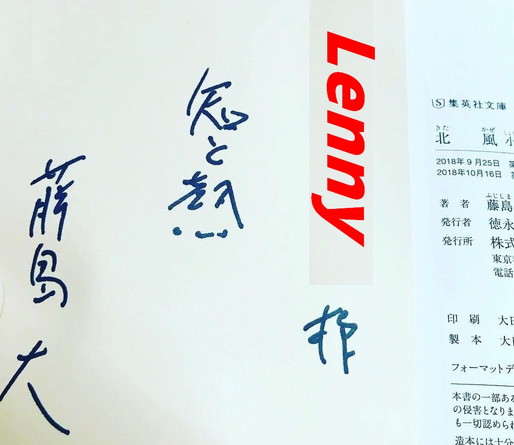 Lenny
様
知と熱
藤島 大
S 集英社文庫
きた かぜ
北 風
2018年9月25日
2018年10月16日
ふじしま
著者 藤島
発行者 徳永
発行所 株式
東京
電話
印刷 大日
製本 大
フォーマットデ
本書の一部ある
の侵害となりま
も一切認められ
造本には十分